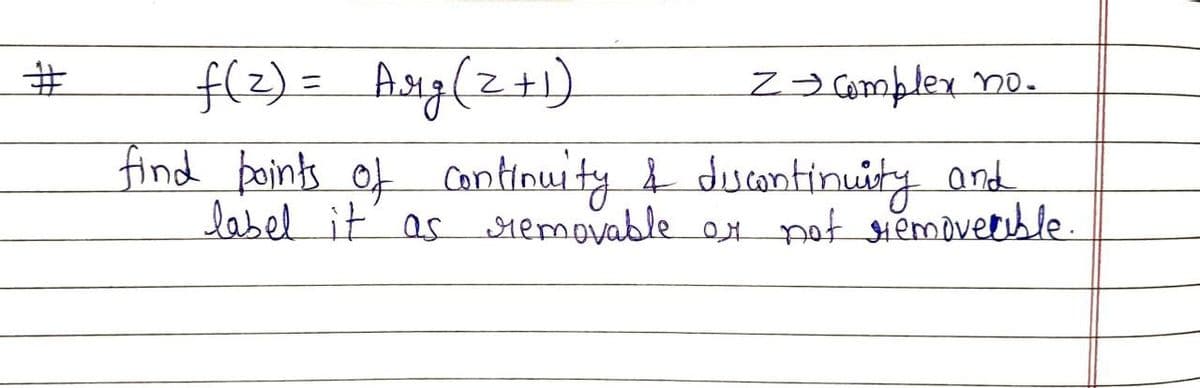 # f(z) = Arg(z+1) z → complex no.
find points of continuity & discontinuity and
label it as removable or not removeable.